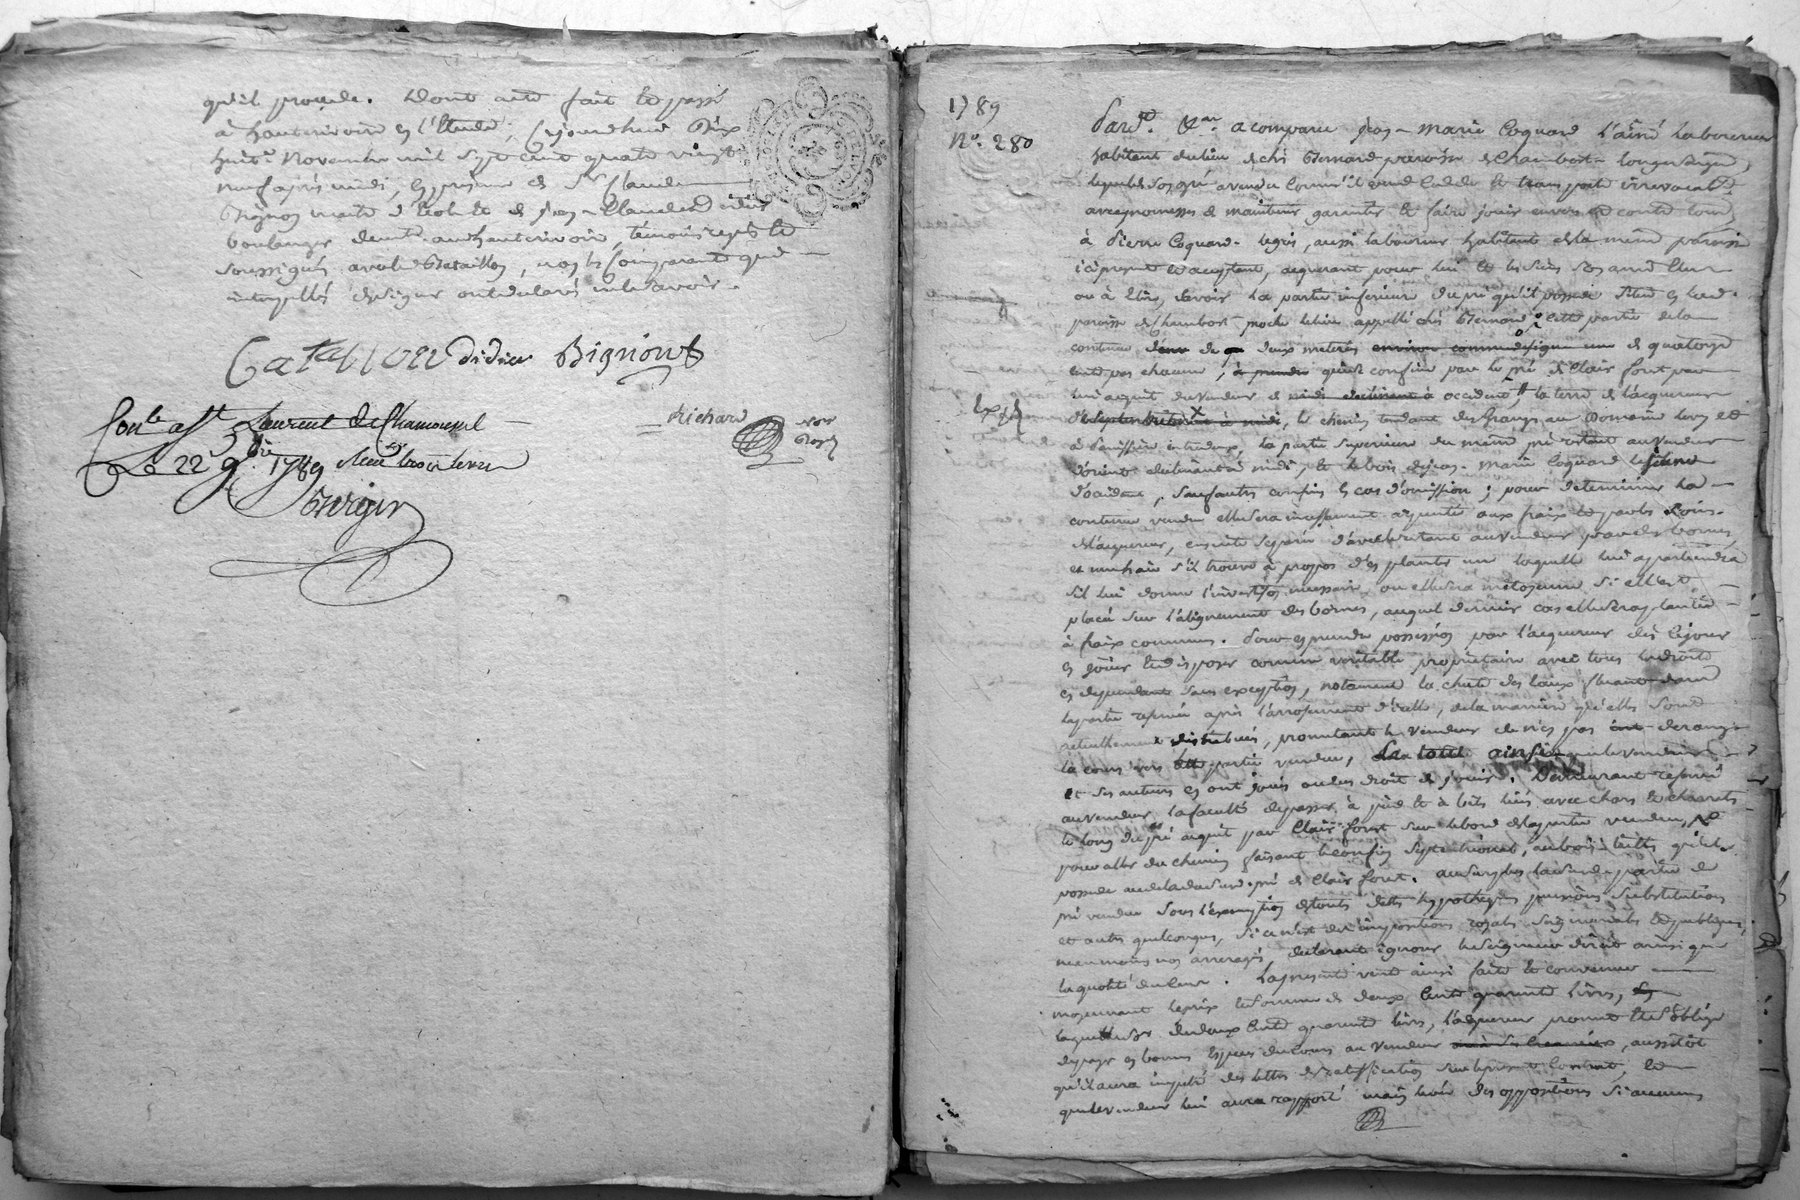 qu'il procede. Dont acte fait et passé
à hauterivoire en l'Etude, cejourdhui dix
huit novembre mil sept cent quatre vingt
neuf après midi, en présence de Sr Claude
Bignon maitre d'Ecole et de jean-Claude didier
boulanger demt audt hauterivoire, témoins requis et
soussignés avec Cataillon, non les Comparants qui
interpellés de signer ont déclarés ne le savoir.
Catallon didier Bignont
Con.le aSt Laurent de Chamousset
Richard
Le 22 9.bre 1789
Berger
not
Royal
1789
N.o 280
Pard.t &.a a comparu jean-marie Coquard l'ainé laboureur
habitant du lieu de chés Bernard paroisse de Chambost-longessaigne,
lequel de son gré a vendu comme il vend cede et transporte irrévocablt
avec promesses de maintenir garantir et faire jouir envers et contre tous
à Pierre Coquard-legros, aussi laboureur habitant de la même paroisse
ici présent et acceptant, acquérant pour lui et les siens son ami Elu
ou à Elire, savoir la partie inférieure du pré qu'il possede situé en lad.
paroisse de Chambost proche le lieu appellé chés Bernard, cette partie de la
contenue de deux meterés environ de quatorze
cent pas chacune, qui se confine par le pré de Clair foret par
lui acquit du vendeur à occident la terre de l'acquereur
de septentrion à midi, le chemin tendant des Granges au Domaine
à entredeux, la partie superieure du même pré restant au vendeur
d'orient declinant à midi, et le bois de jean-marie Coquard le jeune
d'occident, sauf autres confins en cas d'omission; pour déterminer la
contenue vendue elle sera incessamment arpentée aux fraix et par les soins
de l'acquereur, ensuite séparée d'avec le restant au vendeur par des bornes
et une haie s'il trouve à propos d'en planter une laquelle lui appartiendra
s'il lui donne l'invertison necessaire, ou elle sera mitoyenne si elle est
placée sur l'alignement des bornes, auquel dernier cas elle sera plantée
à fraix communs. Pour en prendre possession par l'acquereur dès ce jour
en jouir et disposer comme veritable propriétaire avec tous les droits
en dependant sans exception, notamment la chute des eaux fluant dans
la partie reservée après l'arrosement d'icelle, de la manière qu'elles sont
actuellement distribuées, promettant le vendeur de n'en pas deranger
le cours vers cette partie vendue, Le tout ainsi que le vendeur
et ses auteurs en ont joui ou dus droit de jouir. Demeurant réservé
au vendeur la faculté de passer à pied et à bêts liés avec chars et charrets
le long du pré acquit par Clair foret sur le bord de la partie vendue,
pour aller du chemin faisant le confin septentrional, au bois taillis qu'il
possede audela du susd. pré de Clair foret. au surplus la susd. partie de
pré vendue sous l'exemption de touts detts hypothèques pensions substitutions
et auts quelconques, si ce n'est des impositions royales seigneuriales et publiques
neanmoins sans arrerages, declarant ignorer le Seigneur direct ainsi que
la quotité du cens. La presente vente ainsi faite et convenue
moyennant le prix et somme de deux cents quarante livres,
laquelle somme de deux cents quarante livres, l'acquereur promet et s'oblige
de payer en bonnes espèces du cours au vendeur, aussitôt
qu'il aura impétré des lettres de ratification sur le présent contrat, et
que le vendeur lui aura rapporté main levée des oppositions si aucunes